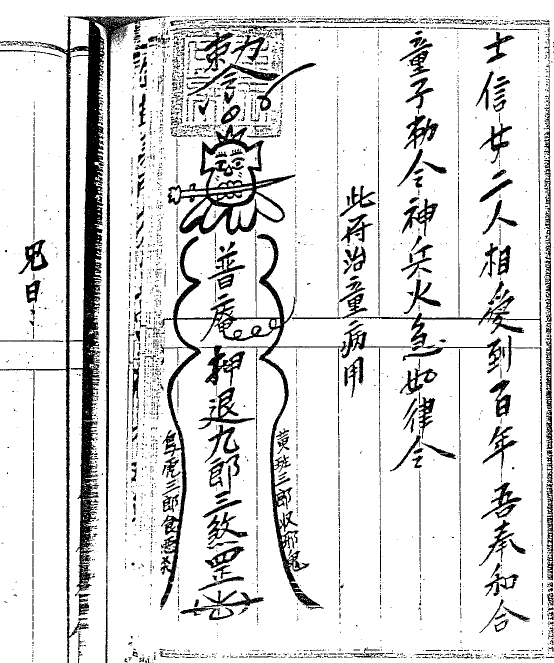 士信女二人相愛到百年吾奉和合
童子勅令神兵火急如律令
此符治童病用
勅令
普庵
押退九郎三煞罡
黄班三郎收邪鬼
烏虎三郎食惡煞
咒曰